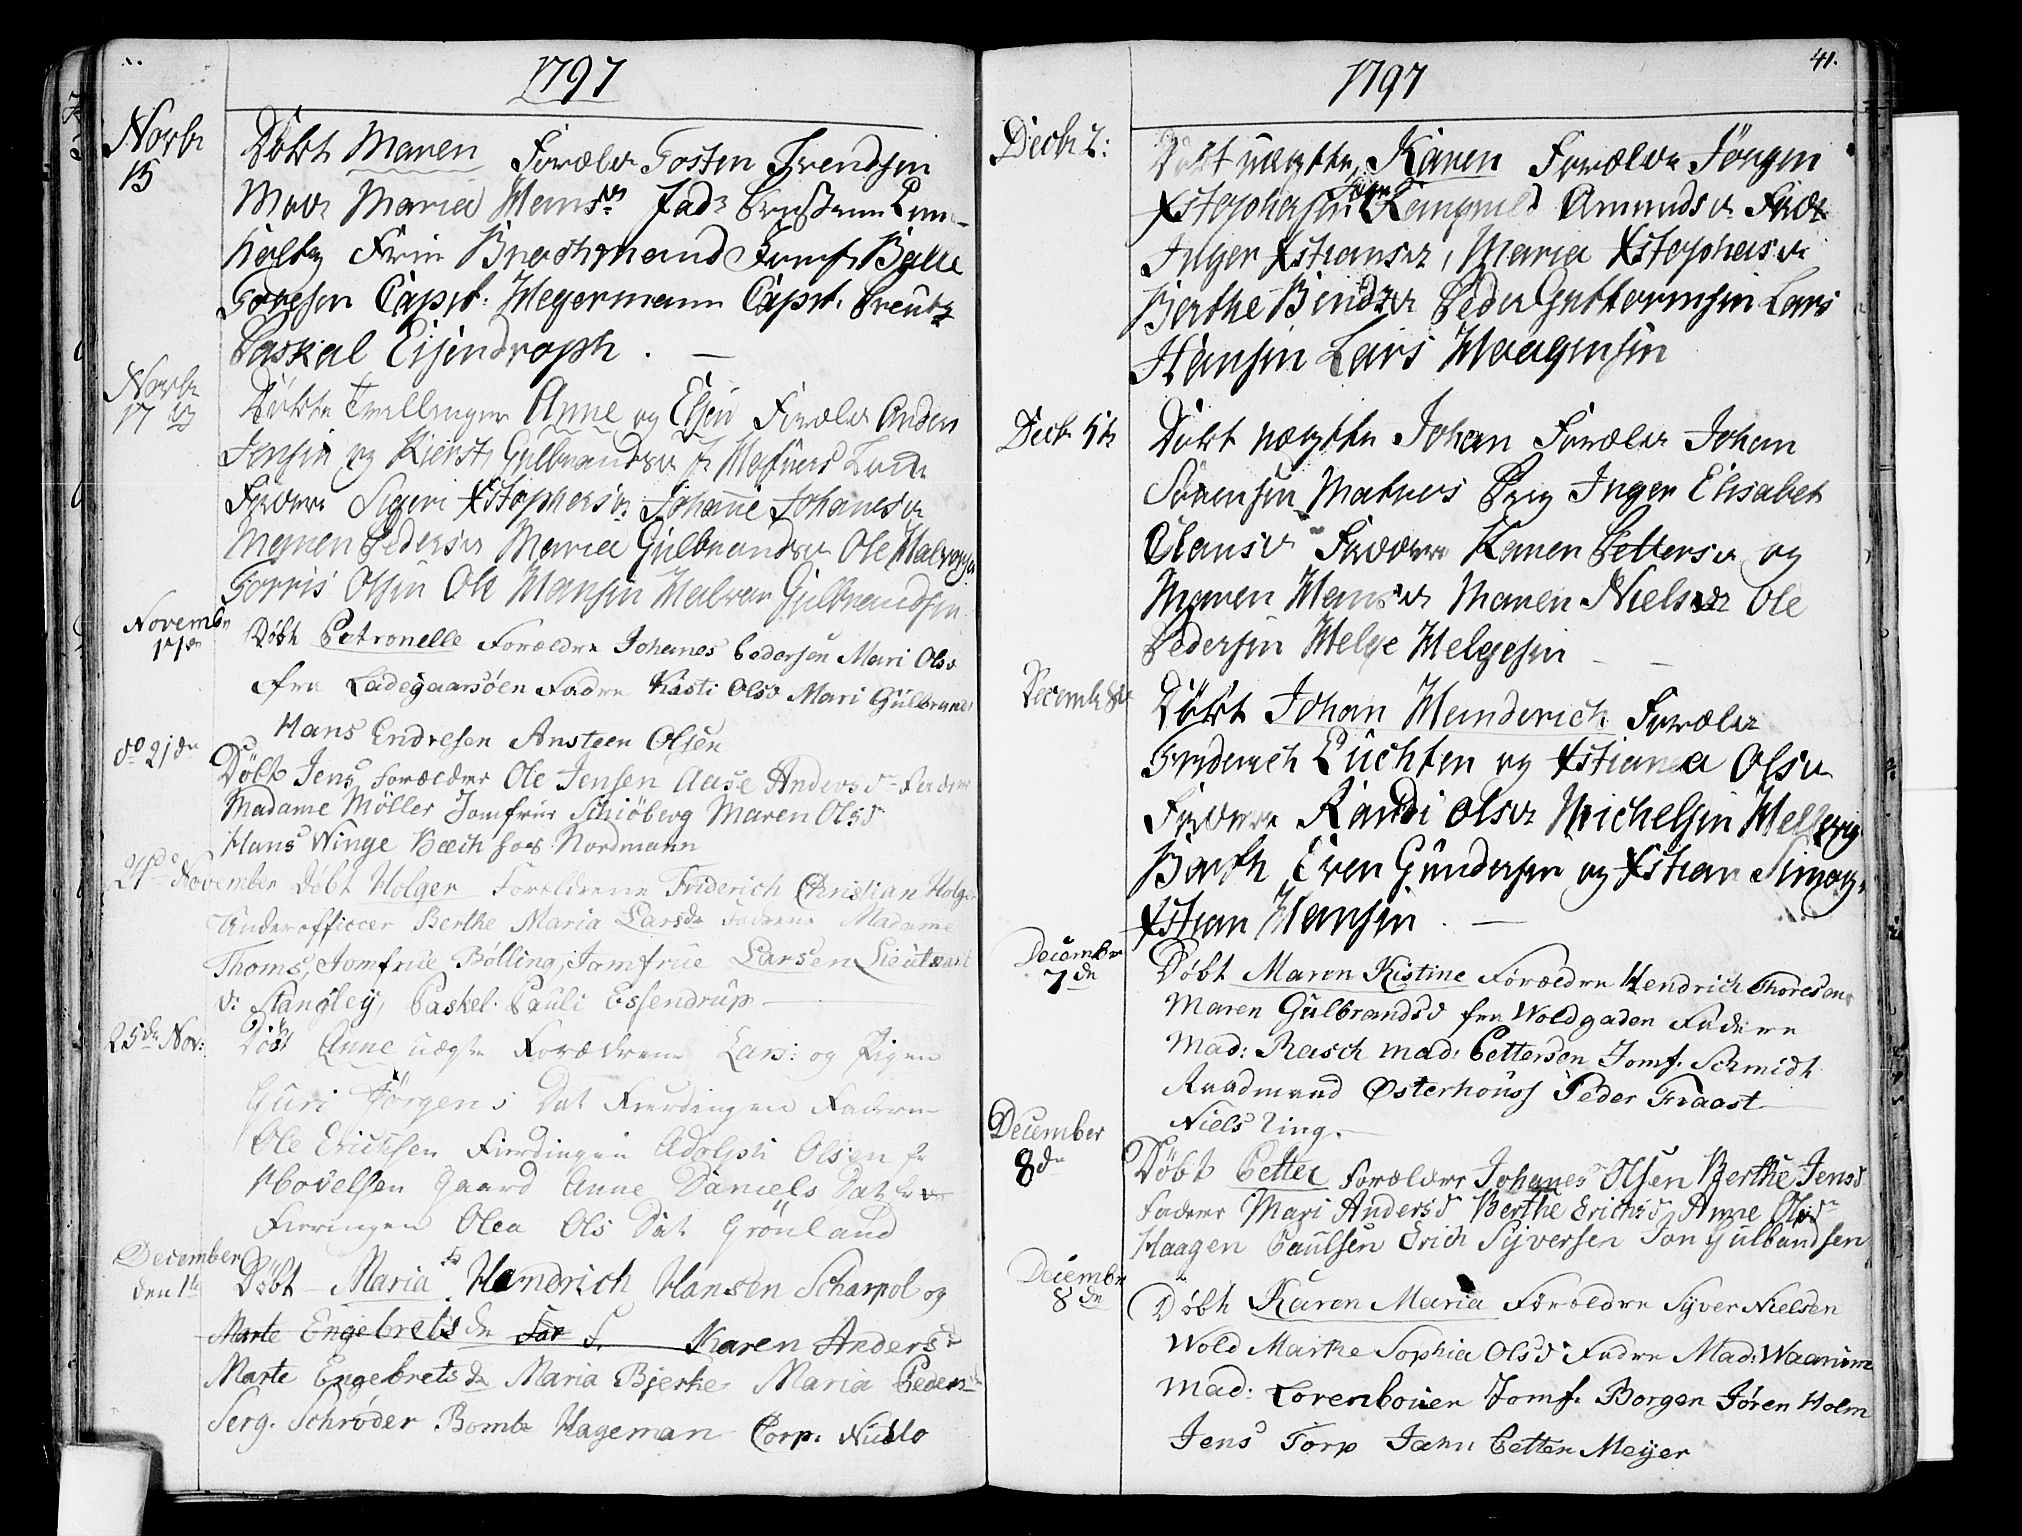 1797
Novbr 15 Döbt Maren Forældr Tosten Trendsen
Moder Maria Hans
Frue Brachmand Jomf. Balle
Capit: Wegermann Capit. Creutz
Paskal Eisendroph . —
Novbr 17 Döbte Tvellinger Anne og Elsev Forældr Anders
Jensen og Kierst Gulbrands
Faddere Sigeri Xstophers Johanne Johanes
Maren Peders Maria Gulbrands Ole Halvorsen
Torris Olsen Ole Hansen Halvor Gulbrandsen
Novembr 17de Döbt Petronelle Forældre Johanes Pedersen Mari Olsd
fra Ladegaarsöen Fadre Kisti Olsd Mari Gulbrands
Hans Endresen Ansteen Olsen
do 21de Döbt Jens Forældre Ole Jensen Aase Andersd Fadere
Madame Möller Jomfrue Schiöberg Maren Olsd
Hans Winge Bæichfoss Nordmann
24de November Döbt Holger Foreldrene Friderich Christian Holger
Underofficcer Berthe Maria Larsdr Fadrene Madame
Thoms, Jomfrue Bölling, Jomfrue Larsen Lieutnant
v: Stangley, Paskel. Pauli Essendrup —
25de Nov: Döbt Anne uægte Forældrene Lars: og Pigen
Guri Jörgens Dat Fierdingen Fadere
Ole Erichsen Fierdingen Adolph Olsen fr
Hovelsen Gaard Anne Daniels Dat fra
Fieringen Olea Ols Dat Grönland
December den 1te Döbt Maria F. Hendrich Hansen Scharpol og
Marte Engebrets de Far F. Karen Andersd
Marte Engebrets d Maria Bjerke Maria Peders
Serg. Schröder Bomb. Hageman Corp. Nublo
41.
1797
Decbr 2: Döbt uægte Karen Forældr Jörgen
Xstophersen Pigen Rangnild Amunds Fadr
Inger Xstians, Maria Xstophers
Berthe Bends Peder Guttormsen Lars
Hansen Lars Haagensen
Decbr 5te Döbt uægte Johan Forældr Johan
Sörensen Matros Pig Inger Elisabet
Claus Faddere Karen Petters og
Maren Hans Maren Niels Ole
Pedersen Helge Helgesen — —
Decembr Döbt Johan Henderich Forældr
Friderich Luchten og Xstiana Ols
Faddere Randi Ols Michelsen Helberg
Barth Even Gundersen og Xstian
Xstian Hansen . —
December 7de Döbt Maren Kistine Forældre Hendrich Thoresen
Maren Gulbrandsd fra Woldgaden Fadere
Mad: Rasch Mad: Pettersen Jomf. Schmidt
Raadmand Østerhouss Peder Fraast
Niels Ring. —
December 8de Döbt Petter Forældre Johanes Olsen Berthe Jensd
Fadere Mari Andersd Berthe Erichsd Anne Olsd
Haagen Paulsen Erich Syversen Jon Gulbrandsen
Decembr 8de Döbt Karen Maria Foroldre Syver Nielsen
Wold Marthe Sophia Olsd Fadre Mad: Waanum
Mad: Lorenboien Jomf. Borgen Jören Holm
Jens Torp Jahn Petter Meyer